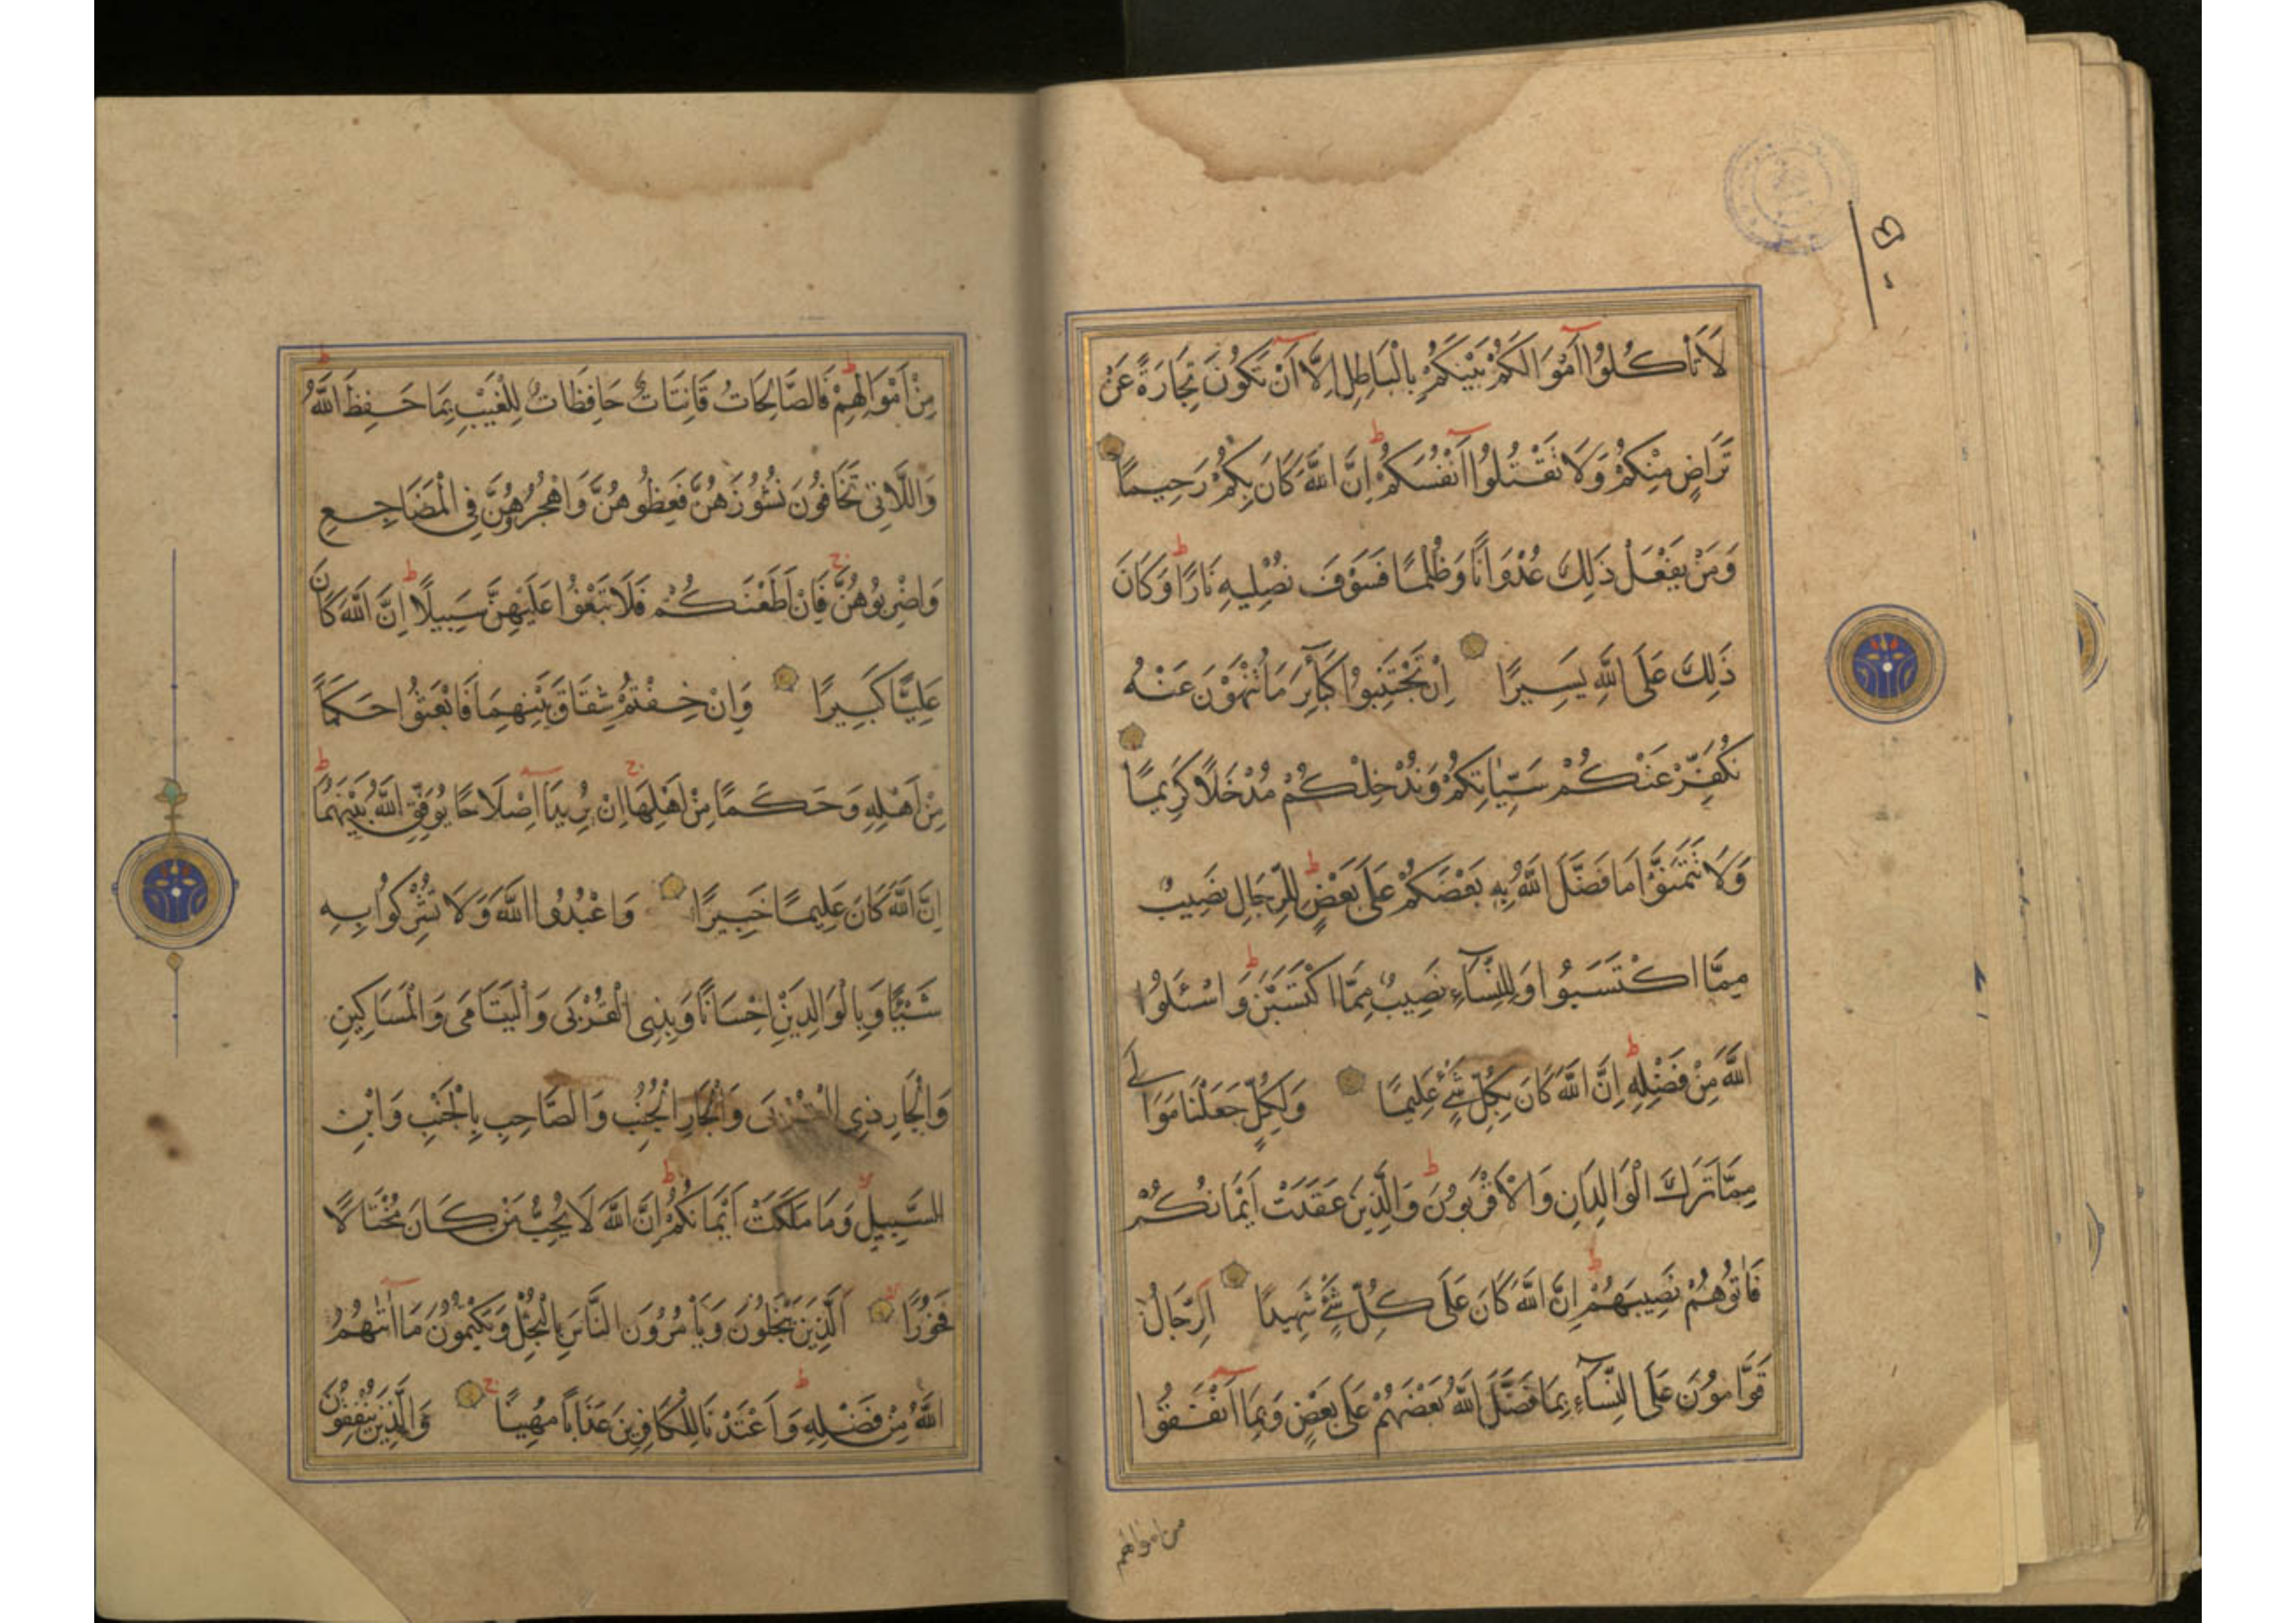 لَا تَأْكُلُوا أَمْوَالَكُمْ بَيْنَكُمْ بِالْبَاطِلِ اِلَّا اَنْ تَكُونَ تِجَارَةً عَنْ
تَرَاضٍ مِنْكُمْ وَلَا تَقْتُلُوا اَنْفُسَكُمْ اِنَّ اللَّهَ كَانَ بِكُمْ رَحِيمًا
وَمَنْ يَفْعَلْ ذَلِكَ عُدْوَانًا وَظُلْمًا فَسَوْفَ نُصْلِيهِ نَارًا وَكَانَ
ذَلِكَ عَلَى اللَّهِ يَسِيرًا اِنْ تَجْتَنِبُوا كَبَآئِرَ مَا تُنْهَوْنَ عَنْهُ
نُكَفِّرْ عَنْكُمْ سَيِّئَاتِكُمْ وَنُدْخِلْكُمْ مُدْخَلًا كَرِيمًا
وَلَا تَتَمَنَّوْا مَا فَضَّلَ اللَّهُ بِهِ بَعْضَكُمْ عَلَى بَعْضٍ لِلرِّجَالِ نَصِيبٌ
مِمَّا اكْتَسَبُوا وَلِلنِّسَآءِ نَصِيبٌ مِمَّا اكْتَسَبْنَ وَاسْئَلُوا
اللَّهَ مِنْ فَضْلِهِ اِنَّ اللَّهَ كَانَ بِكُلِّ شَيْءٍ عَلِيمًا وَلِكُلٍّ جَعَلْنَا مَوَالِيَ
مِمَّا تَرَكَ الْوَالِدَانِ وَالْاَقْرَبُونَ وَالَّذِينَ عَقَدَتْ اَيْمَانُكُمْ
فَاٰتُوهُمْ نَصِيبَهُمْ اِنَّ اللَّهَ كَانَ عَلَى كُلِّ شَيْءٍ شَهِيدًا اَلرِّجَالُ
قَوَّامُونَ عَلَى النِّسَآءِ بِمَا فَضَّلَ اللَّهُ بَعْضَهُمْ عَلَى بَعْضٍ وَبِمَا اَنْفَقُوا
من اموالهم
مِنْ اَمْوَالِهِمْ فَالصَّالِحَاتُ قَانِتَاتٌ حَافِظَاتٌ لِلْغَيْبِ بِمَا حَفِظَ اللَّهُ
وَاللَّاتِي تَخَافُونَ نُشُوزَهُنَّ فَعِظُوهُنَّ وَاهْجُرُوهُنَّ فِي الْمَضَاجِعِ
وَاضْرِبُوهُنَّ فَاِنْ اَطَعْنَكُمْ فَلَا تَبْغُوا عَلَيْهِنَّ سَبِيلًا اِنَّ اللَّهَ كَانَ
عَلِيًّا كَبِيرًا وَاِنْ خِفْتُمْ شِقَاقَ بَيْنِهِمَا فَابْعَثُوا حَكَمًا
مِنْ اَهْلِهِ وَحَكَمًا مِنْ اَهْلِهَا اِنْ يُرِيدَا اِصْلَاحًا يُوَفِّقِ اللَّهُ بَيْنَهُمَا
اِنَّ اللَّهَ كَانَ عَلِيمًا خَبِيرًا وَاعْبُدُوا اللَّهَ وَلَا تُشْرِكُوا بِهِ
شَيْئًا وَبِالْوَالِدَيْنِ اِحْسَانًا وَبِذِي الْقُرْبَى وَالْيَتَامَى وَالْمَسَاكِينِ
وَالْجَارِ ذِي الْقُرْبَى وَالْجَارِ الْجُنُبِ وَالصَّاحِبِ بِالْجَنْبِ وَابْنِ
السَّبِيلِ وَمَا مَلَكَتْ اَيْمَانُكُمْ اِنَّ اللَّهَ لَا يُحِبُّ مَنْ كَانَ مُخْتَالًا
فَخُورًا اَلَّذِينَ يَبْخَلُونَ وَيَأْمُرُونَ النَّاسَ بِالْبُخْلِ وَيَكْتُمُونَ مَا اٰتٰهُمُ
اللَّهُ مِنْ فَضْلِهِ وَاَعْتَدْنَا لِلْكَافِرِينَ عَذَابًا مُهِينًا وَالَّذِينَ يُنْفِقُونَ